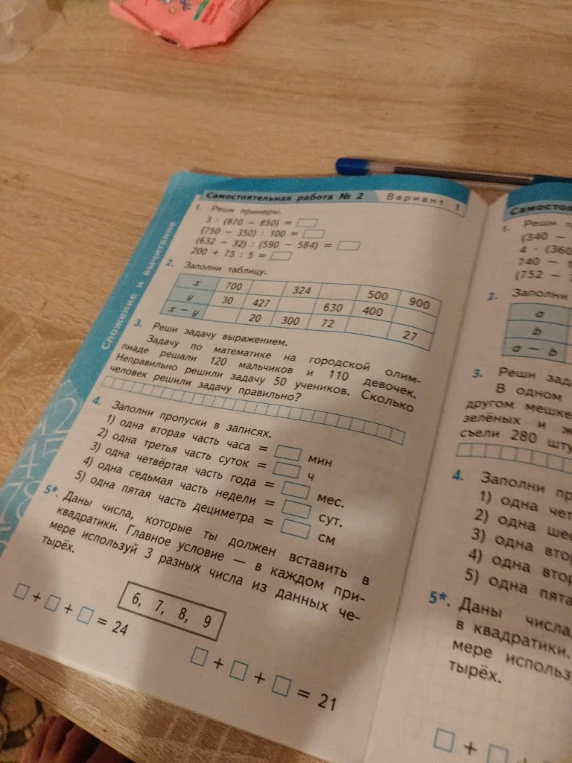 Сложение и вычитание
Самостоятельная работа № 2 Вариант 1
1. Реши примеры.
3 · (870 − 850) =
(750 − 350) : 100 =
(632 − 32) : (590 − 584) =
200 + 75 : 5 =
2. Заполни таблицу.
x 700 324 500 900
y 30 427 630 400
x − y 20 300 72 27
3. Реши задачу выражением.
Задачу по математике на городской олим-
пиаде решали 120 мальчиков и 110 девочек.
Неправильно решили задачу 50 учеников. Сколько
человек решили задачу правильно?
4. Заполни пропуски в записях.
1) одна вторая часть часа = мин
2) одна третья часть суток = ч
3) одна четвёртая часть года = мес.
4) одна седьмая часть недели = сут.
5) одна пятая часть дециметра = см
5*. Даны числа, которые ты должен вставить в
квадратики. Главное условие — в каждом при-
мере используй 3 разных числа из данных че-
тырёх.
6, 7, 8, 9
+ + = 24
+ + = 21
Самостоя
1. Реши п
(340 −
4 · (360
740 − 1
(752 −
2. Заполни
a
b
a − b
3. Реши зада
В одном
другом мешке
зелёных и ж
съели 280 шту
4. Заполни пр
1) одна чет
2) одна шес
3) одна втор
4) одна втор
5) одна пята
5*. Даны числа,
в квадратики.
мере использ
тырёх.
+